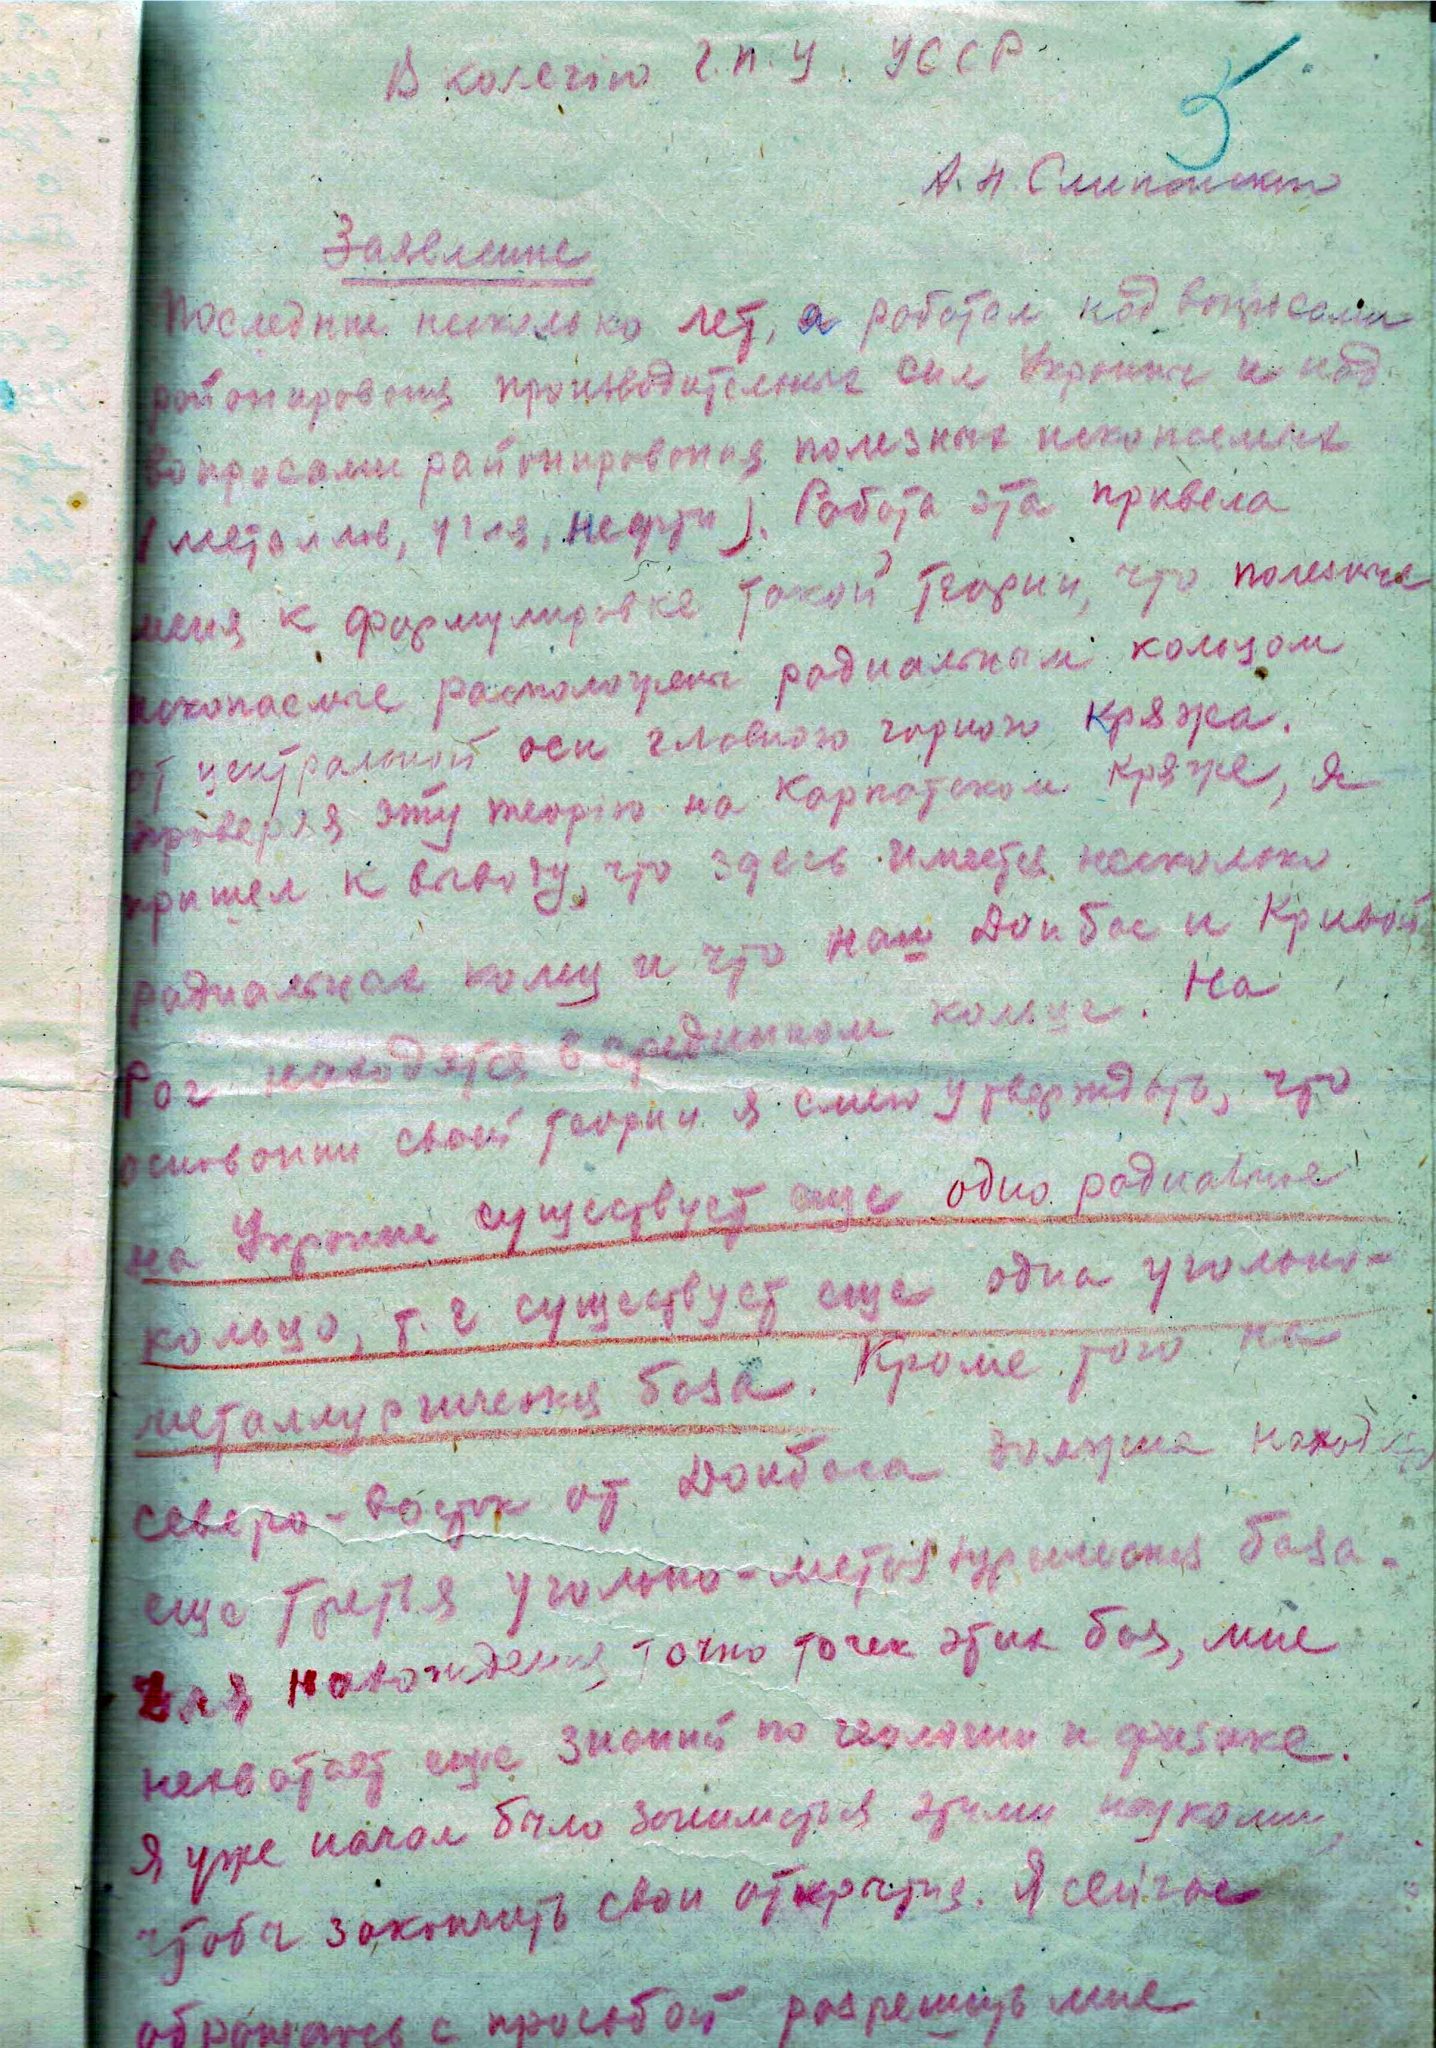 В колегію Г.П.У. УССР
5
А. Н. Слипанско
Заявление
Последние несколько лет, я работал над вопросами
районирования производительных сил Украины и над
вопросами районирования полезных ископаемых
(металлов, угля, нефти). Работа эта привела
меня к формулировке такой теории, что полезные
ископаемые расположены радиальным кольцом
от центральной оси главного горного кряжа.
Проверяя эту теорію на Карпатском кряже, я
пришел к выводу, что здесь имеется несколько
радиальных колец и что наш Донбас и Кривой
Рог находятся в срединном кольце. На
основании своей теории я смею утверждать, что
на Украине существует еще одно радиальное
кольцо, т. е существует еще одна угольно-
металлургическая база. Кроме того на
северо-восток от Донбаса должна находится
еще третья угольно-металлургическая база.
Для нахождения точно точек этих баз, мне
нехватает еще знаний по геологии и физике.
Я уже начал было заниматься этими науками,
чтобы закончить свои открытия. Я сейчас
обращаюсь с просьбой разрешить мне